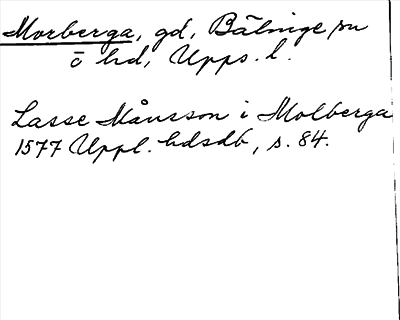 Morberga, gd, Bälinge sn
o hd, Upps. l.
Lasse Månsson i Molberga
1577 Uppl. hdsdb, s. 84.